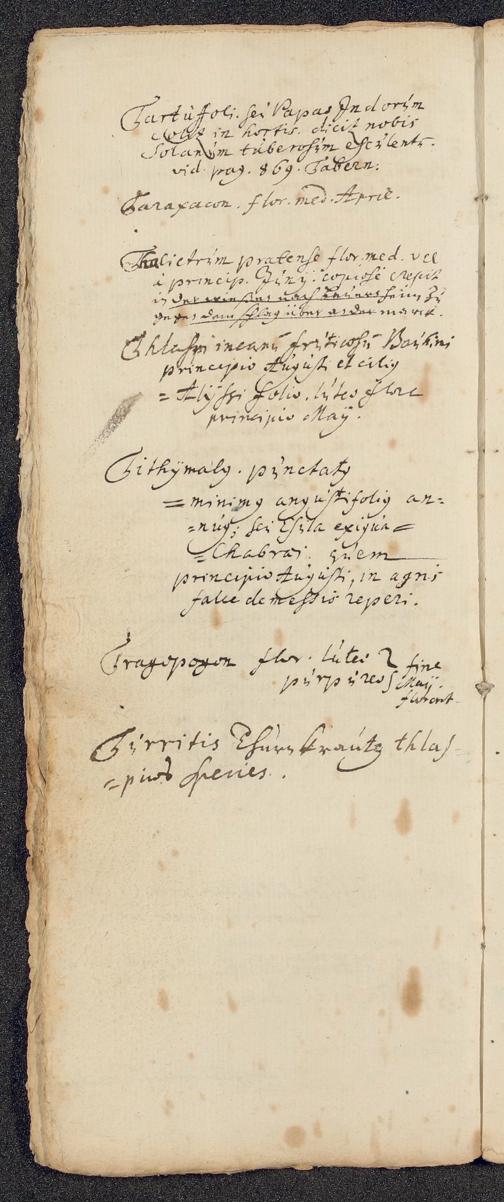 Tartuffoli. sei Papas Indorum
colit in hortis. dicit nobis
Solanum tuberosum esculent.
vid. pag. 869. Tabern:
Taraxacon. flor. med. April.
Thalictrum pratense flor. med. vel
à princip. Junÿ. copiosè crescit
in der nach zu
über
Thlaspi incanu fruticosu Bauhini
principio Augusti et
= Alÿssi folio, luteo flore
principio Maÿ.
Tithÿmalq. punctatq
= minimq angustifoliq an=
=nuq; sei Esula exigua =
= Chabraei. quem
principio Augusti, in agris
falce demessis reperi.
Tragopogon flor. lutei } fine
purpureo } Maÿ.
florent
Turritis Thurnkrautq thlas
=pios species.